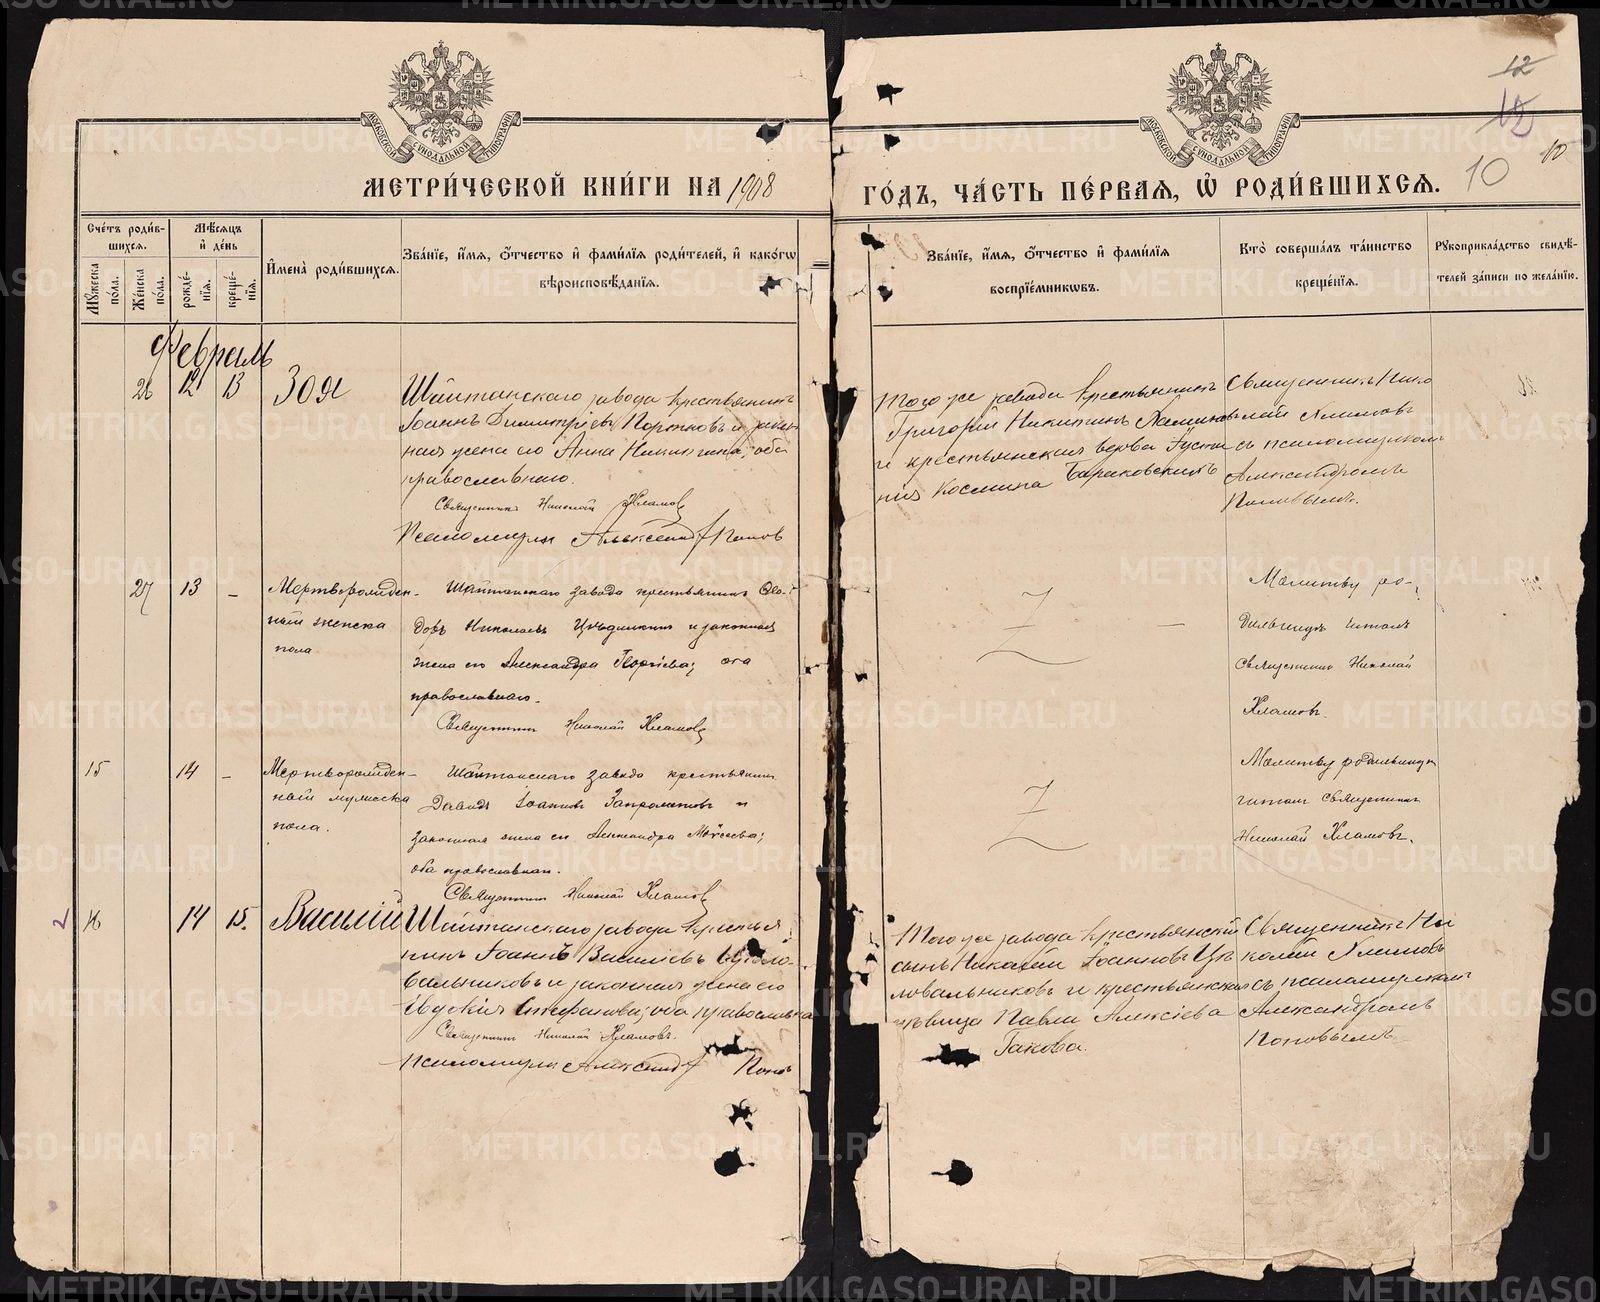 МЕТРИ́ЧЕСКОЙ КНИ́ГИ НА 1908
ГО́ДЪ, ЧА́СТЬ ПЕ́РВАЯ, Ѡ҆ РОДИ́ВШИХСЯ.
12
12
10
10
МОСКОВСКОЙ СѴНОДАЛЬНОЙ ТИПОГРАФІИ
МОСКОВСКОЙ СѴНОДАЛЬНОЙ ТИПОГРАФІИ
Сче́тъ роди́в-
шихся.
Мꙋ́жеска по́ла.
Же́нска по́ла.
Мѣ́сяцъ
и҆ де́нь
рожде́-нїя.
креще́-нїя.
И҆мена̀ роди́вшихся.
Зва́нїе, и҆́мя, ѻ҆́тчество и҆ фами́лїя роди́телей, и҆ како́гѡ
вѣроисповѣ́данїя.
Зва́нїе, и҆́мя, ѻ҆́тчество и҆ фами́лїя
воспрїе́мникѡвъ.
Кто̀ соверша́лъ та́инство
креще́нїя.
Рꙋкоприкла́дство свидѣ́-
телей за́писи по жела́нїю.
Февраль
26 12 13 Зоя
Шайтанскаго завода крестьянинъ
Іоаннъ Димитріевъ Портновъ и закон-
ная жена его Анна Никитина, оба
православнаго.
Священникъ Николай Хламовъ
Псаломщикъ Александръ Поповъ
Того же завода крестьянинъ
Григорій Никитинъ
и крестьянская вдова Іусти
нія Космина
Священникъ Нико
лай Хламовъ
съ псаломщикомъ
Александромъ
Поповымъ.
27 13 –
Мертворожден-
ный женска
пола
Шайтанскаго завода крестьянинъ Ѳео-
доръ Николаевъ и законная
жена его Александра Георгіева; оба
православнаго.
Священникъ Николай Хламовъ
Молитву ро-
дильницѣ читалъ
священникъ Николай
Хламовъ.
15 14 –
Мертворожден-
ный мужеска
пола.
Шайтанскаго завода крестьянинъ
Давидъ Іоанновъ и
законная жена его Александра Моѵсеева;
оба православнаго.
Священникъ Николай Хламовъ
Молитву родильницѣ
читалъ священникъ
Николай Хламовъ.
16 14 15. Василій
Шайтанскаго завода крестья
нинъ Іоаннъ Василіевъ Цѣло-
вальниковъ и законная жена его
Евдокія Стефанова; оба православна
Священникъ Николай Хламовъ.
Псаломщикъ Александръ Поповъ
Того же завода крестьянскій
сынъ Николай Іоанновъ Цѣ
ловальниковъ и крестьянская
дѣвица Павла Алексіева
Гакова.
Священникъ Ни
колай Хламовъ
съ псаломщикомъ
Александромъ
Поповымъ
METRIKI.GASO-URAL.RU